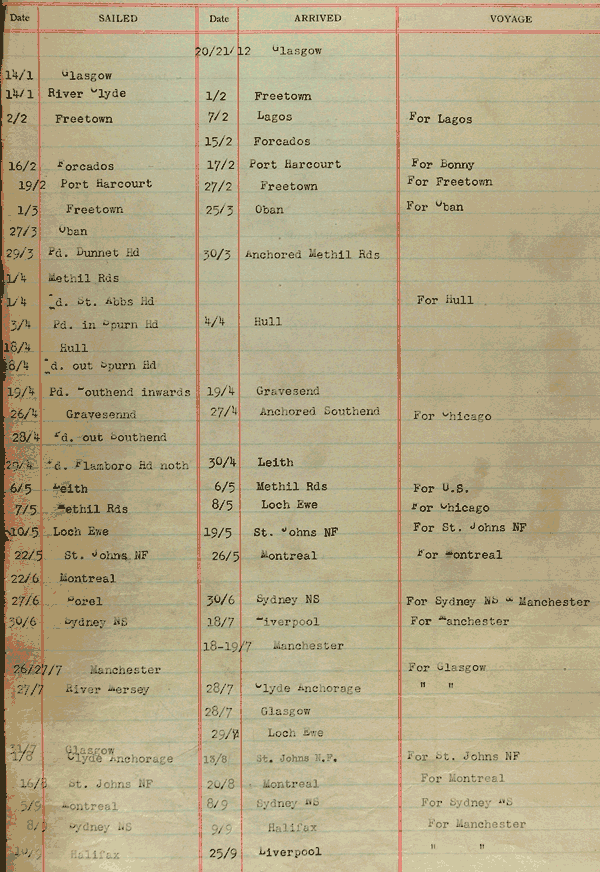 Date SAILED Date ARRIVED VOYAGE
20/21/12 Glasgow
14/1 Glasgow
14/1 River Clyde 1/2 Freetown
2/2 Freetown 7/2 Lagos For Lagos
15/2 Forcados
16/2 Forcados 17/2 Port Harcourt For Bonny
19/2 Port Harcourt 27/2 Freetown For Freetown
1/3 Freetown 25/3 Oban For Oban
27/3 Oban
29/3 Pd. Dunnet Hd 30/3 Anchored Methil Rds
1/4 Methil Rds
1/4 Pd. St. Abbs Hd For Hull
3/4 Pd. in Spurn Hd 4/4 Hull
18/4 Hull
18/4 Pd. out Spurn Hd
19/4 Pd. Southend inwards 19/4 Gravesend
26/4 Gravesennd 27/4 Anchored Southend For Chicago
28/4 Pd. out Southend
29/4 Pd. Flamboro Hd noth 30/4 Leith
6/5 Leith 6/5 Methil Rds For U.S.
7/5 Methil Rds 8/5 Loch Ewe For Chicago
10/5 Loch Ewe 19/5 St. Johns NF For St. Johns NF
22/5 St. Johns NF 26/5 Montreal For Montreal
22/6 Montreal
27/6 Sorel 30/6 Sydney NS For Sydney NS & Manchester
30/6 Sydney NS 18/7 Liverpool For Manchester
18-19/7 Manchester
26/27/7 Manchester For Glasgow
27/7 River Mersey 28/7 Clyde Anchorage " "
28/7 Glasgow
29/7 Loch Ewe
31/7 Glasgow
1/8 Clyde Anchorage 13/8 St. Johns N.F. For St. Johns NF
16/8 St. Johns NF 20/8 Montreal For Montreal
5/9 Montreal 8/9 Sydney NS For Sydney NS
8/9 Sydney NS 9/9 Halifax For Manchester
10/9 Halifax 25/9 Liverpool " "